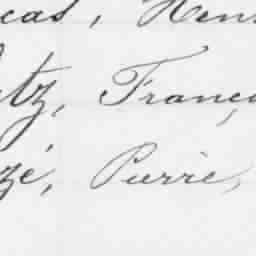 cas, Hen
tz, Franç
zé, Pierre,